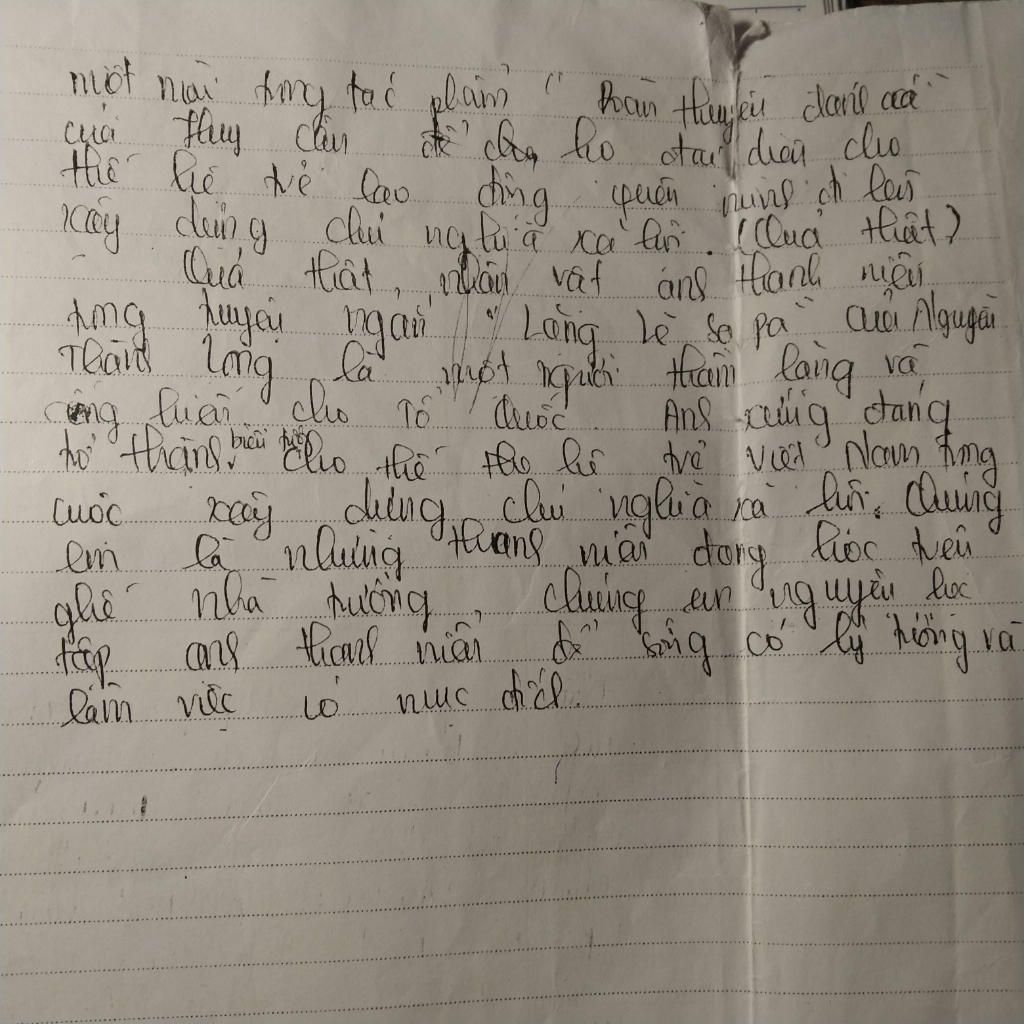 một mai trong tác phẩm " Đoàn thuyền đánh cá "
của Huy Cận để cho họ đại diện cho
thế hệ trẻ lao động quên mình đi lên
xây dựng chủ nghĩa xã hội. (Quả thật)
Quả thật, nhân vật anh thanh niên
trong truyện ngắn " Lặng Lẽ Sa pa " của Nguyễn
Thành Long là một người thầm lặng và
cống hiến cho Tổ Quốc. Anh xứng đáng
trở thành biểu cho thế hệ trẻ Việt Nam trong
cuộc xây dựng chủ nghĩa xã hội. Chúng
em là những thanh niên đang học trên
ghế nhà trường, chúng em nguyện học
tập anh thanh niên để sống có lý tưởng và
làm việc có mục đích.